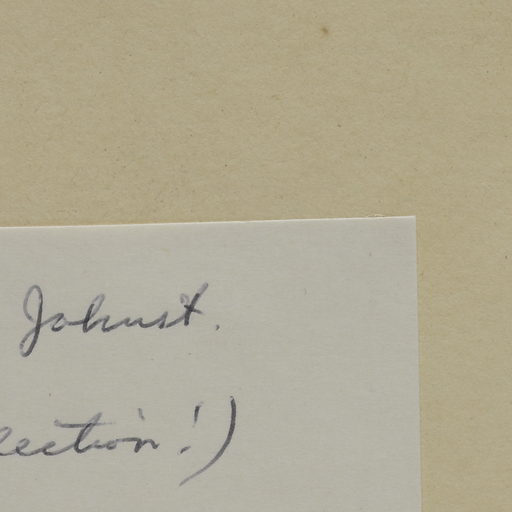 Johnst.
lection!)